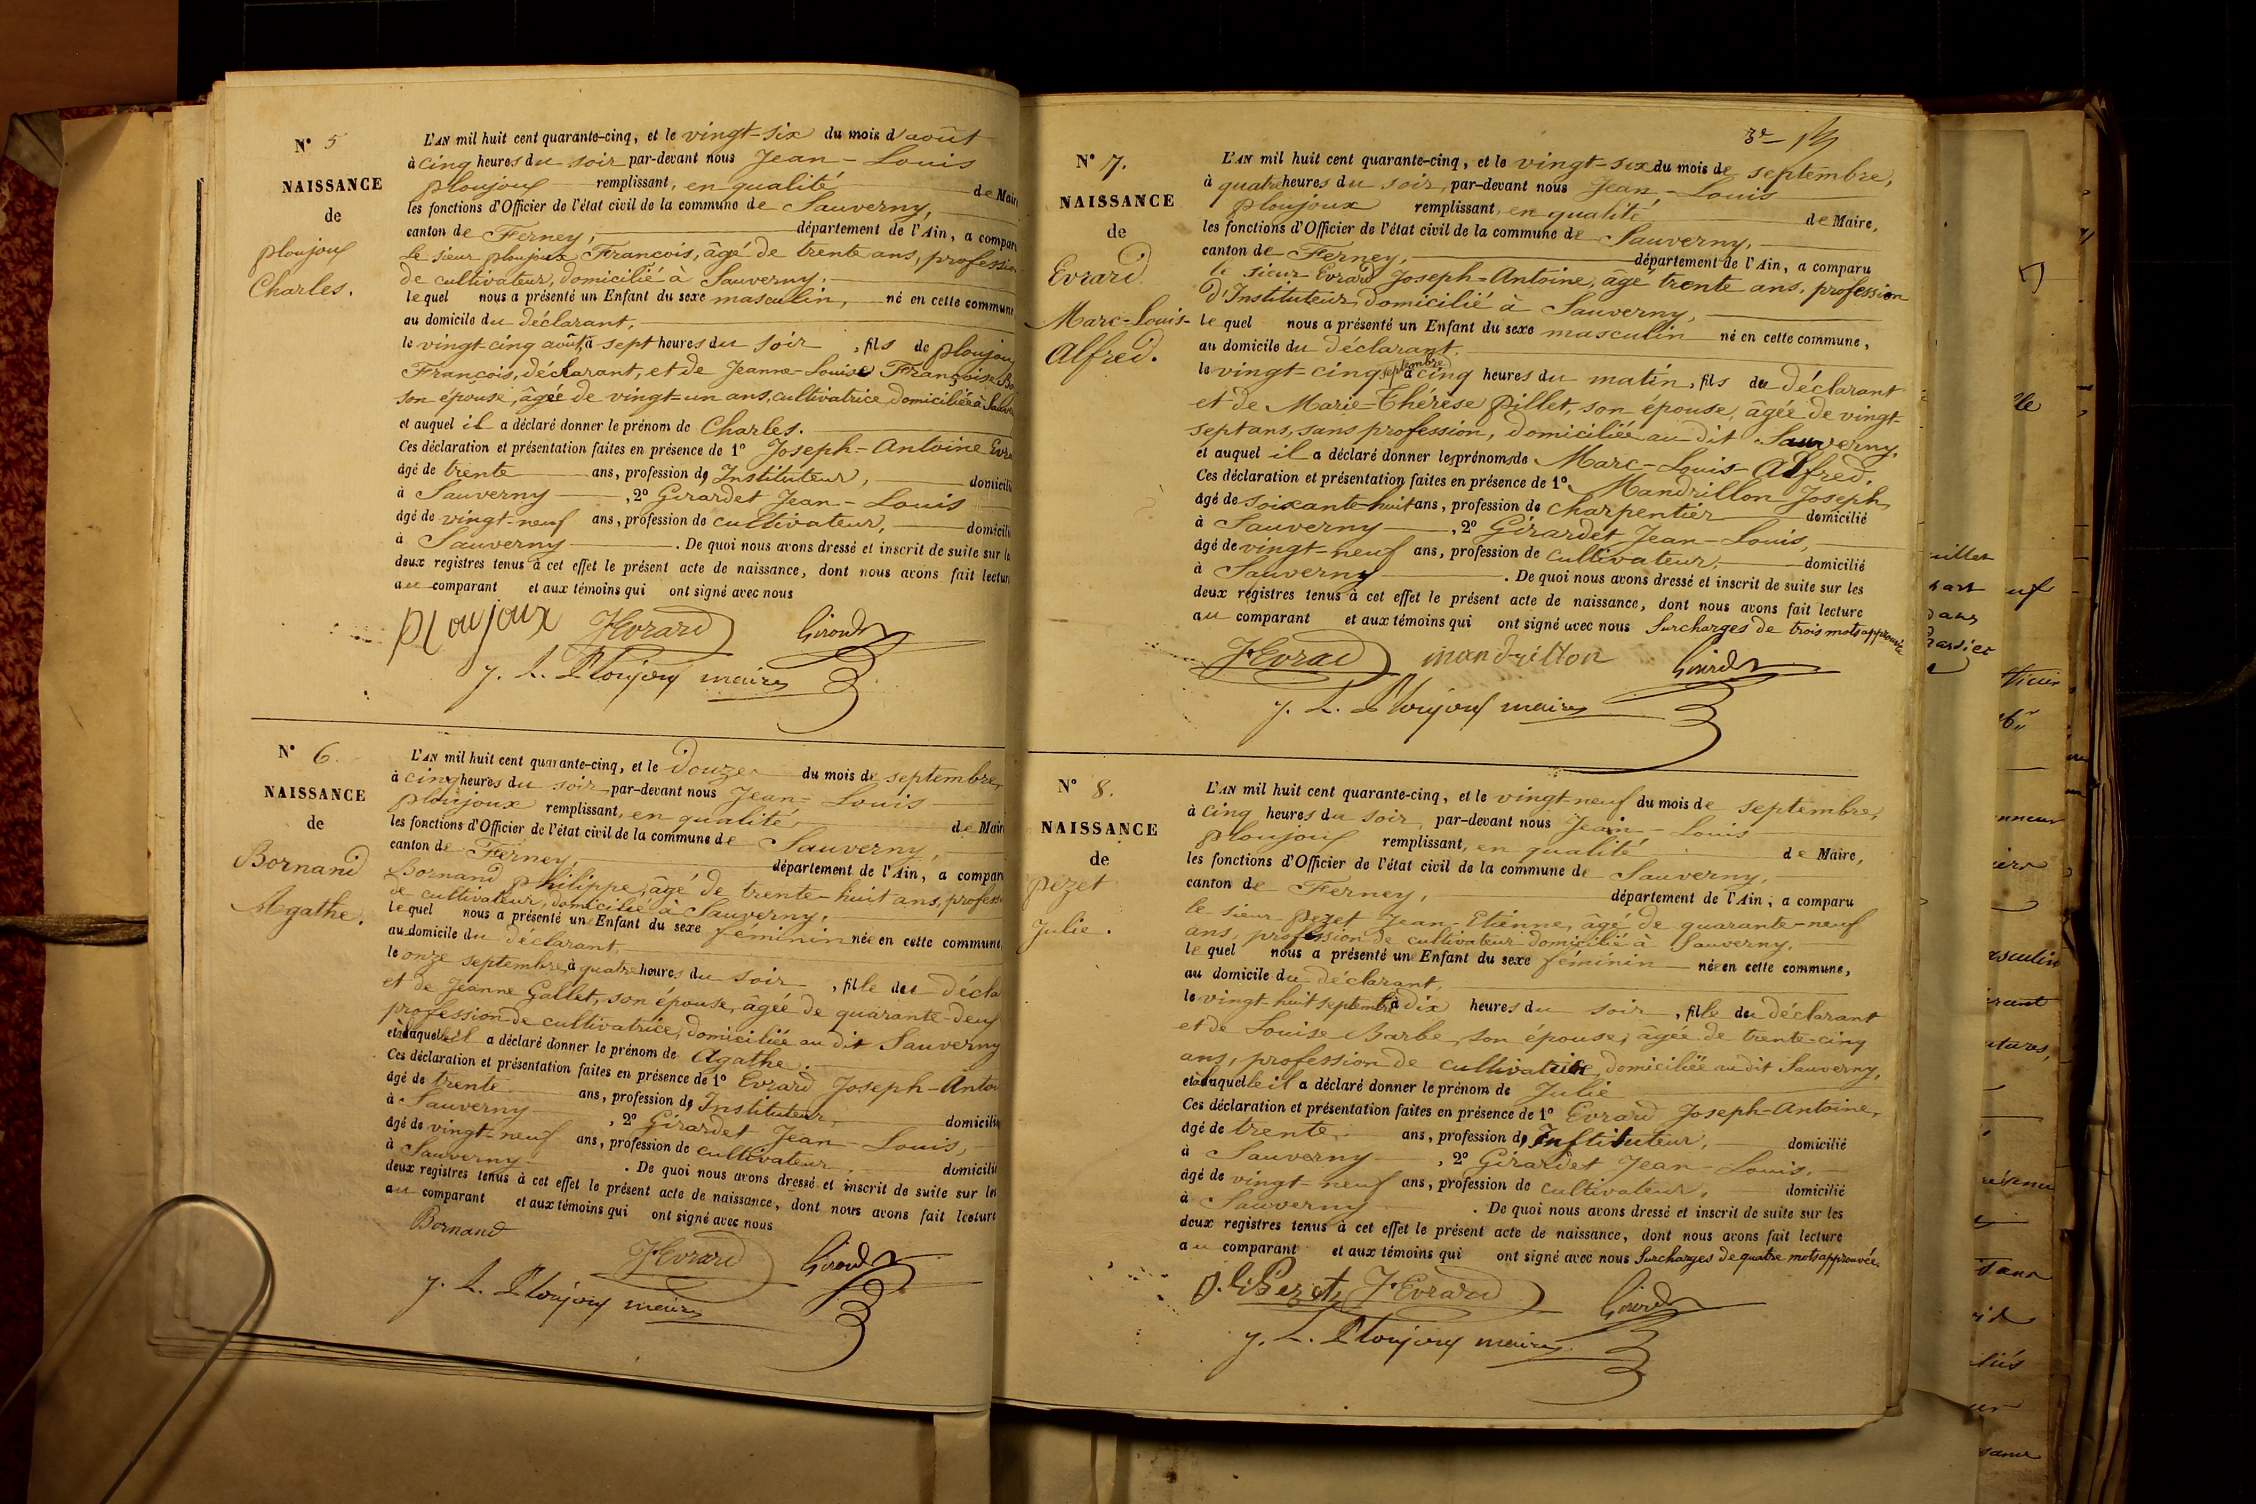 N° 5
NAISSANCE
de
Ploujoux
Charles.
L'AN mil huit cent quarante-cinq, et le vingt-six du mois d'août
à cinq heures du soir par-devant nous Jean-Louis
Ploujoux remplissant, en qualité de Maire
les fonctions d'Officier de l'état civil de la commune de Sauverny,
canton de Ferney, département de l'Ain, a compar
Le sieur Ploujoux François, âgé de trente ans, profession
de cultivateur, domicilié à Sauverny.
lequel nous a présenté un Enfant du sexe masculin, né en cette commune
au domicile du déclarant.
le vingt-cinq août, à sept heures du soir, fils de Ploujoux
François, déclarant, et de Jeanne-Louise Françoise
son épouse, âgée de vingt-un ans, cultivatrice domiciliée à Sauve
et auquel il a déclaré donner le prénom de Charles.
Ces déclaration et présentation faites en présence de 1° Joseph-Antoine Evra
âgé de trente ans, profession d'Instituteur, domicili
à Sauverny, 2° Girardet Jean-Louis
âgé de vingt-neuf ans, profession de cultivateur, domicili
à Sauverny. De quoi nous avons dressé et inscrit de suite sur le
deux registres tenus à cet effet le présent acte de naissance, dont nous avons fait lectur
au comparant et aux témoins qui ont signé avec nous
Ploujoux JEvrard Girardet
J. L. Ploujoux maire
N° 6.
NAISSANCE
de
Bornand
Agathe.
L'AN mil huit cent quarante-cinq, et le douze du mois de septembre,
à cinq heures du soir par-devant nous Jean-Louis
Ploujoux remplissant, en qualité, de Maire
les fonctions d'Officier de l'état civil de la commune de Sauverny,
canton de Ferney, département de l'Ain, a compar
Bornand Philippe, âgé de trente-huit ans, profess
de cultivateur, domicilié à Sauverny,
lequel nous a présenté un Enfant du sexe féminin née en cette commune
au domicile du déclarant.
le onze septembre, à quatre heures du soir, fille du décla
et de Jeanne Gallet, son épouse, âgée de quarante-deux
profession de cultivatrice, domiciliée au dit Sauverny
et à laquelle il a déclaré donner le prénom de Agathe.
Ces déclaration et présentation faites en présence de 1° Evrard Joseph-Antoi
âgé de trente ans, profession d'Instituteur, domicilié
à Sauverny, 2° Girardet Jean-Louis,
âgé de vingt-neuf ans, profession de cultivateur, domicilié
à Sauverny. De quoi nous avons dressé et inscrit de suite sur les
deux registres tenus à cet effet le présent acte de naissance, dont nous avons fait lecture
au comparant et aux témoins qui ont signé avec nous
Bornand
JEvrard Girardet
J. L. Ploujoux maire
N° 7.
NAISSANCE
de
Evrard
Marc-Louis-
Alfred.
L'AN mil huit cent quarante-cinq, et le vingt-six du mois de septembre,
à quatre heures du soir, par-devant nous Jean-Louis
Ploujoux remplissant, en qualité de Maire,
les fonctions d'Officier de l'état civil de la commune de Sauverny,
canton de Ferney, département de l'Ain, a comparu
le sieur Evrard Joseph-Antoine, âgé trente ans, profession
d'Instituteur, domicilié à Sauverny,
lequel nous a présenté un Enfant du sexe masculin né en cette commune,
au domicile du déclarant.
le vingt-cinq septembre à cinq heures du matin, fils du déclarant
et de Marie-Thérèse Pillet, son épouse, âgée de vingt-
sept ans, sans profession, domiciliée au dit Sauverny.
et auquel il a déclaré donner les prénoms de Marc-Louis-Alfred.
Ces déclaration et présentation faites en présence de 1° Mandrillon Joseph
âgé de soixante-huit ans, profession de charpentier domicilié
à Sauverny, 2° Girardet Jean-Louis,
âgé de vingt-neuf ans, profession de cultivateur, domicilié
à Sauverny. De quoi nous avons dressé et inscrit de suite sur les
deux registres tenus à cet effet le présent acte de naissance, dont nous avons fait lecture
au comparant et aux témoins qui ont signé avec nous Surcharges de trois mots approuvée
JEvrad mandrillon Girardet
J. L. Ploujoux maire
N° 8.
NAISSANCE
de
Pezet
Julie.
L'AN mil huit cent quarante-cinq, et le vingt-neuf du mois de septembre,
à cinq heures du soir, par-devant nous Jean-Louis
Ploujoux remplissant, en qualité de Maire,
les fonctions d'Officier de l'état civil de la commune de Sauverny,
canton de Ferney, département de l'Ain, a comparu
le sieur Pezet Jean-Etienne, âgé de quarante-neuf
ans, profession de cultivateur domicilié à Sauverny.
lequel nous a présenté un Enfant du sexe féminin née en cette commune,
au domicile du déclarant,
le vingt-huit septembre à dix heures du soir, fille du déclarant
et de Louise Barbe, son épouse, âgée de trente-cinq
ans, profession de cultivatrice, domiciliée au dit Sauverny,
et à laquelle il a déclaré donner le prénom de Julie
Ces déclaration et présentation faites en présence de 1° Evrard Joseph-Antoine,
âgé de trente ans, profession d'Instituteur, domicilié
à Sauverny, 2° Girardet Jean-Louis,
âgé de vingt-neuf ans, profession de cultivateur, domicilié
à Sauverny. De quoi nous avons dressé et inscrit de suite sur les
deux registres tenus à cet effet le présent acte de naissance, dont nous avons fait lecture
au comparant et aux témoins qui ont signé avec nous Surcharges de quatre mots approuvée.
Pezet JEvrard Girardet
J. L. Ploujoux maire